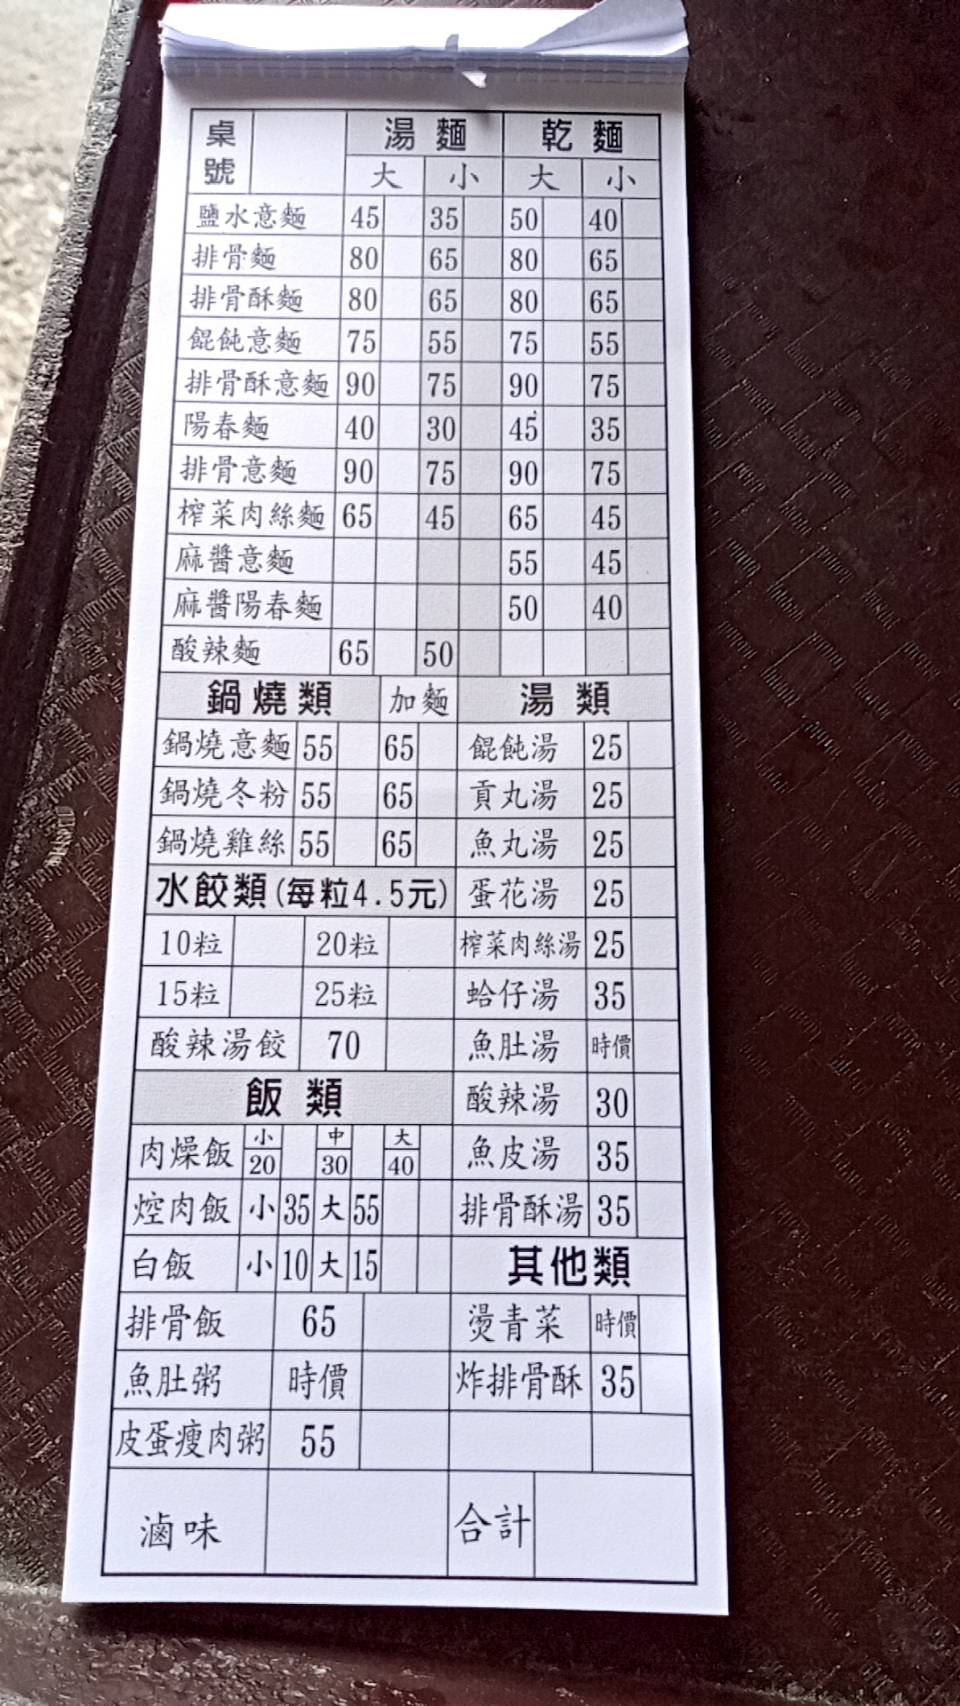 桌號 湯麵 乾麵
大 小 大 小
鹽水意麵 45 35 50 40
排骨麵 80 65 80 65
排骨酥麵 80 65 80 65
餛飩意麵 75 55 75 55
排骨酥意麵 90 75 90 75
陽春麵 40 30 45 35
排骨意麵 90 75 90 75
榨菜肉絲麵 65 45 65 45
麻醬意麵 55 45
麻醬陽春麵 50 40
酸辣麵 65 50
鍋燒類 加麵
鍋燒意麵 55 65
鍋燒冬粉 55 65
鍋燒雞絲 55 65
水餃類(每粒4.5元)
10粒 20粒
15粒 25粒
酸辣湯餃 70
飯類
肉燥飯 小 20 中 30 大 40
焢肉飯 小 35 大 55
白飯 小 10 大 15
排骨飯 65
魚肚粥 時價
皮蛋瘦肉粥 55
滷味
湯類
餛飩湯 25
貢丸湯 25
魚丸湯 25
蛋花湯 25
榨菜肉絲湯 25
蛤仔湯 35
魚肚湯 時價
酸辣湯 30
魚皮湯 35
排骨酥湯 35
其他類
燙青菜 時價
炸排骨酥 35
合計